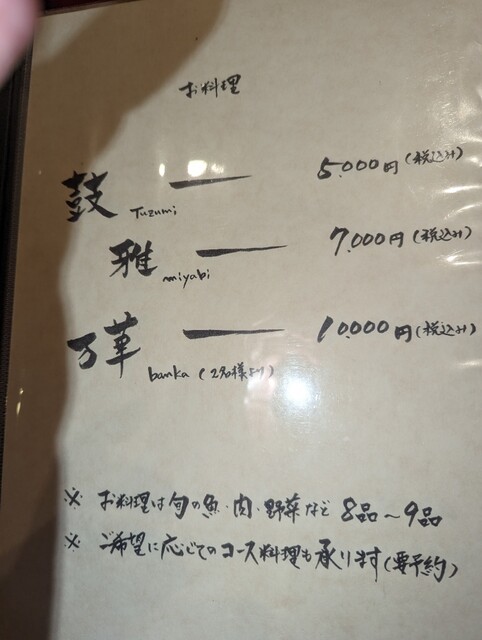 お料理
鼓 Tuzumi 5,000円(税込み)
雅 miyabi 7,000円(税込み)
万華 banka (2名様より) 10,000円(税込み)
※ お料理は旬の魚・肉・野菜など 8品～9品
※ ご希望に応じてのコース料理も承ります(要予約)